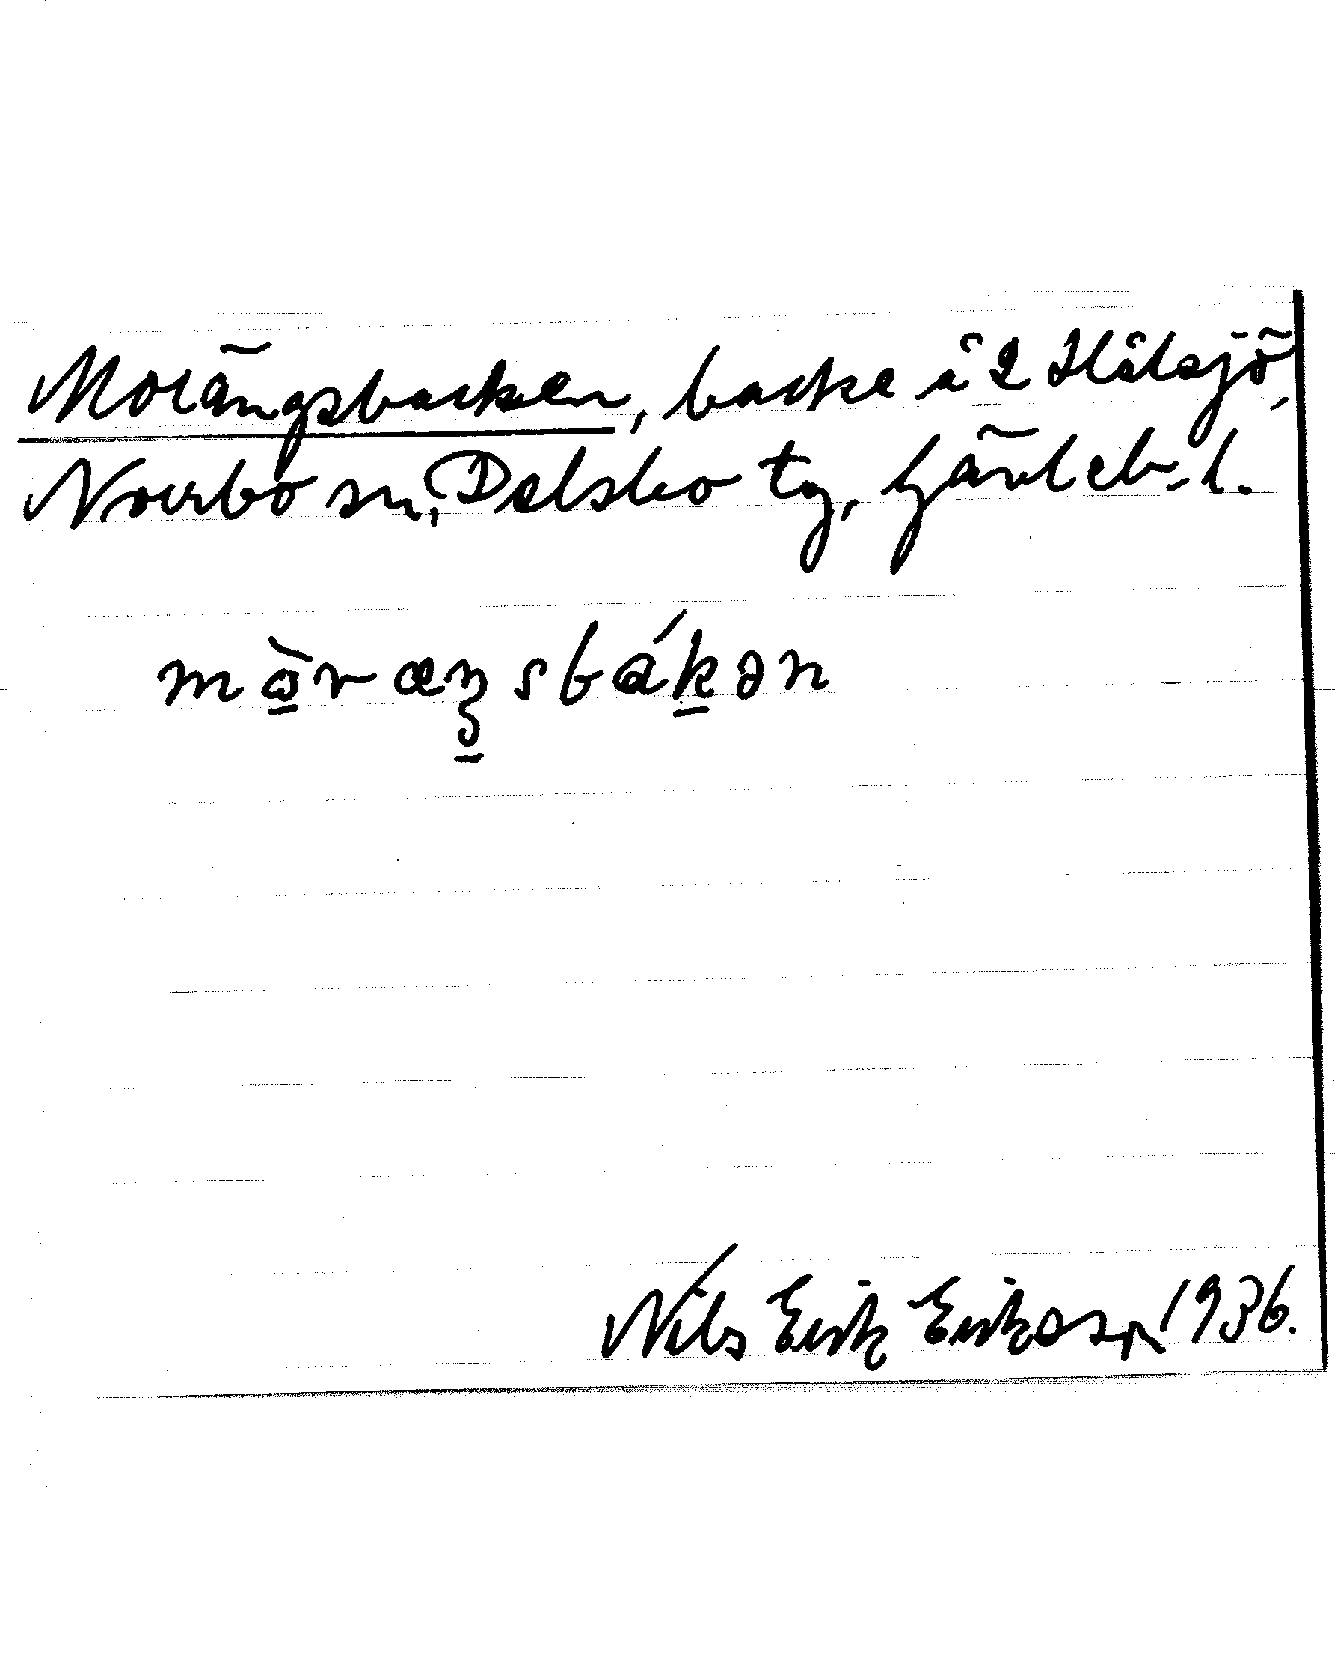 Morängsbacken, backe å 2 Hålsjö,
Norrbo sn, Delsbo tg, Gävleb. l.
mɷ̀ræŋsbákən
Nils Erik Erikson 1936.